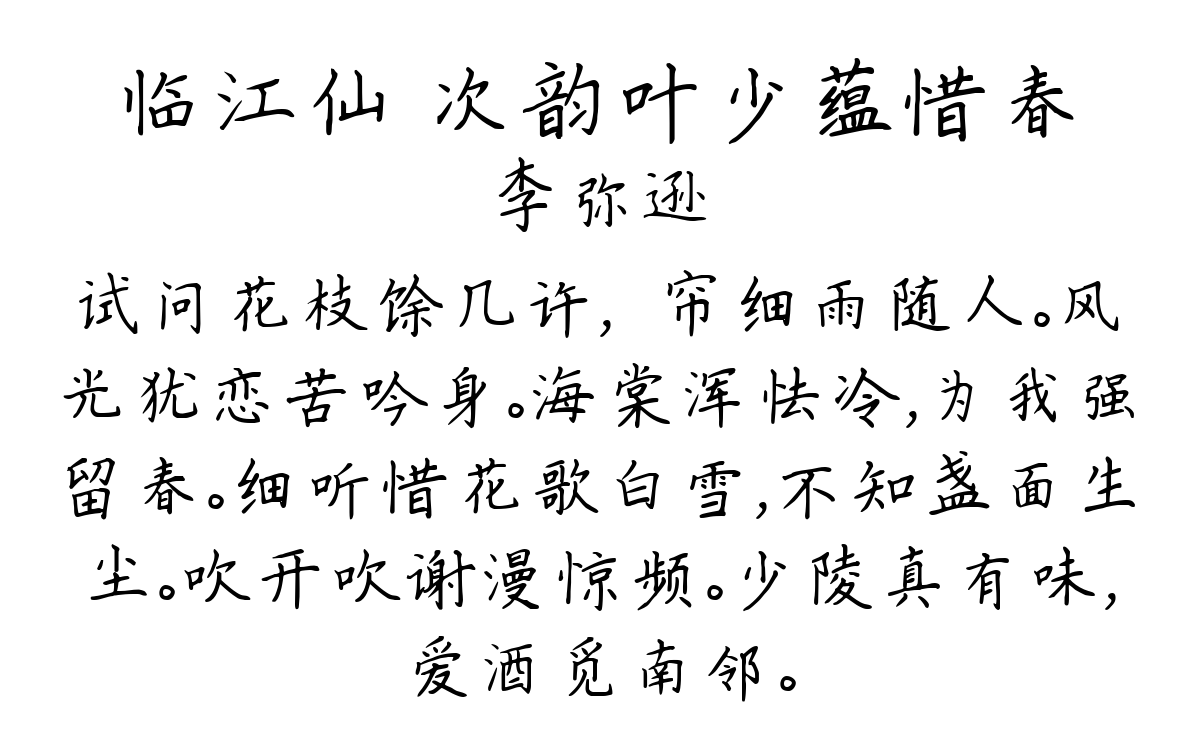 临江仙 次韵叶少蕴惜春
李弥逊
试问花枝馀几许，帘细雨随人。风
光犹恋苦吟身。海棠浑怯冷，为我强
留春。细听惜花歌白雪，不知盏面生
尘。吹开吹谢漫惊频。少陵真有味，
爱酒觅南邻。